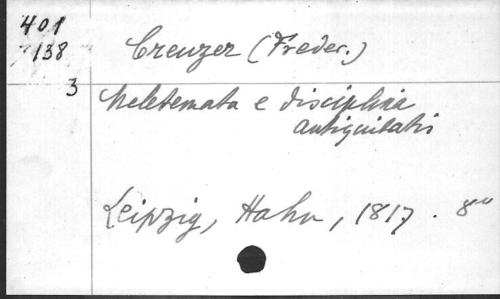 401
138
Creuzer (Freder.)
3
Meletemata e disciplina
antiquitatis
Leipzig, Hahn, 1817. 8°